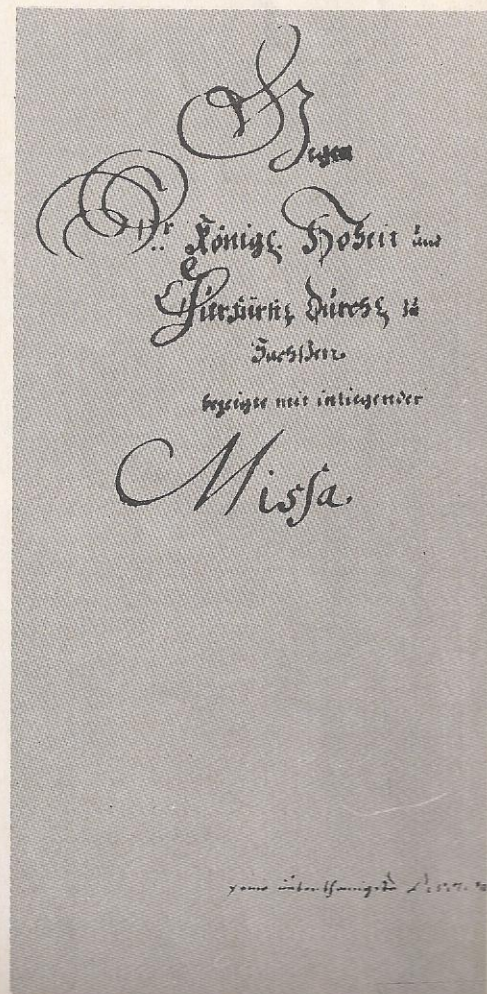 Gegen
Sr. Königl. Hoheit und
Churfürstl. Durchl. zu
Sachßen.
bezeigte mit inliegender
Missa.
seine unterthänigste